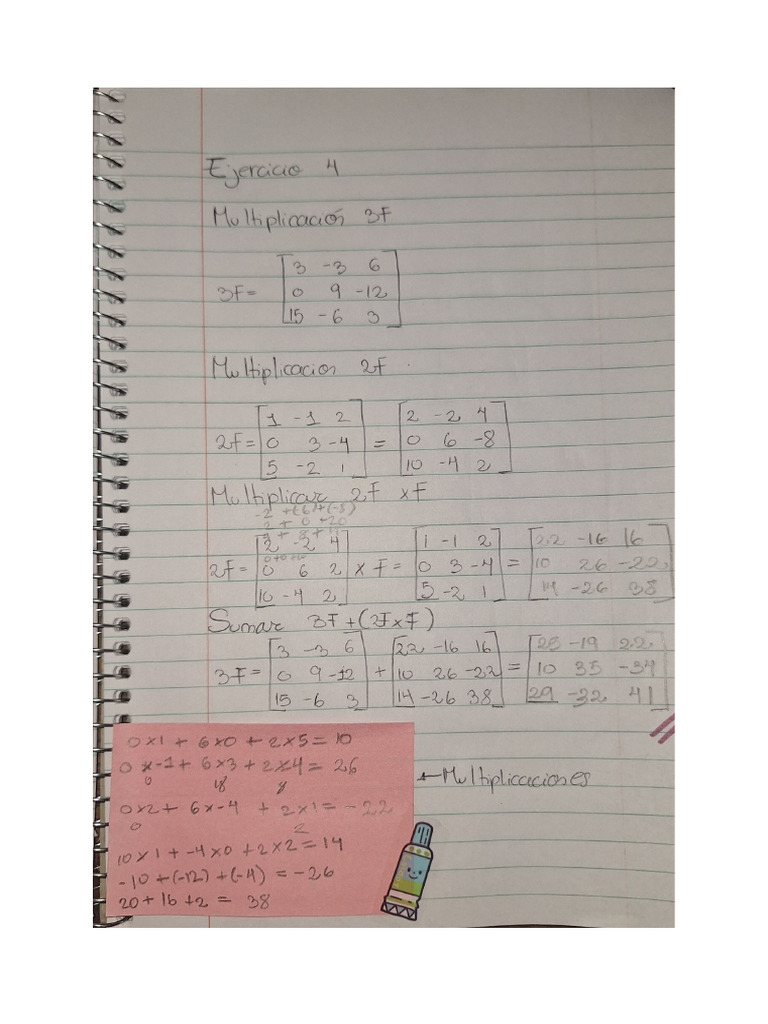 Ejercicio 4
Multiplicación 3F
3F= [3 -3 6
0 9 -12
15 -6 3]
Multiplicacion 2F
2F= [1 -1 2
0 3 -4
5 -2 1] = [2 -2 4
0 6 -8
10 -4 2]
Multiplicar 2F xF
-2 +(-6)+(-5)
2 + 0 +20
2F= [2 -2 4
0 6 2
10 -4 2] x F= [1 -1 2
0 3 -4
5 -2 1] = [22 -16 16
10 26 -22
14 -26 38]
Sumar 3F+(2FxF)
3F= [3 -3 6
0 9 -12
15 -6 3] + [22 -16 16
10 26 -22
14 -26 38] = [25 -19 22
10 35 -34
29 -32 41]
0x1 + 6x0 + 2x5 = 10
0x-1 + 6x3 + 2x4 = 26
0 18 8
0x2 + 6x-4 + 2x1 = -22
0 2
10x1 + -4x0 + 2x2 = 14
-10 +(-12) +(-4) = -26
20 + 16 + 2 = 38
←Multiplicaciones